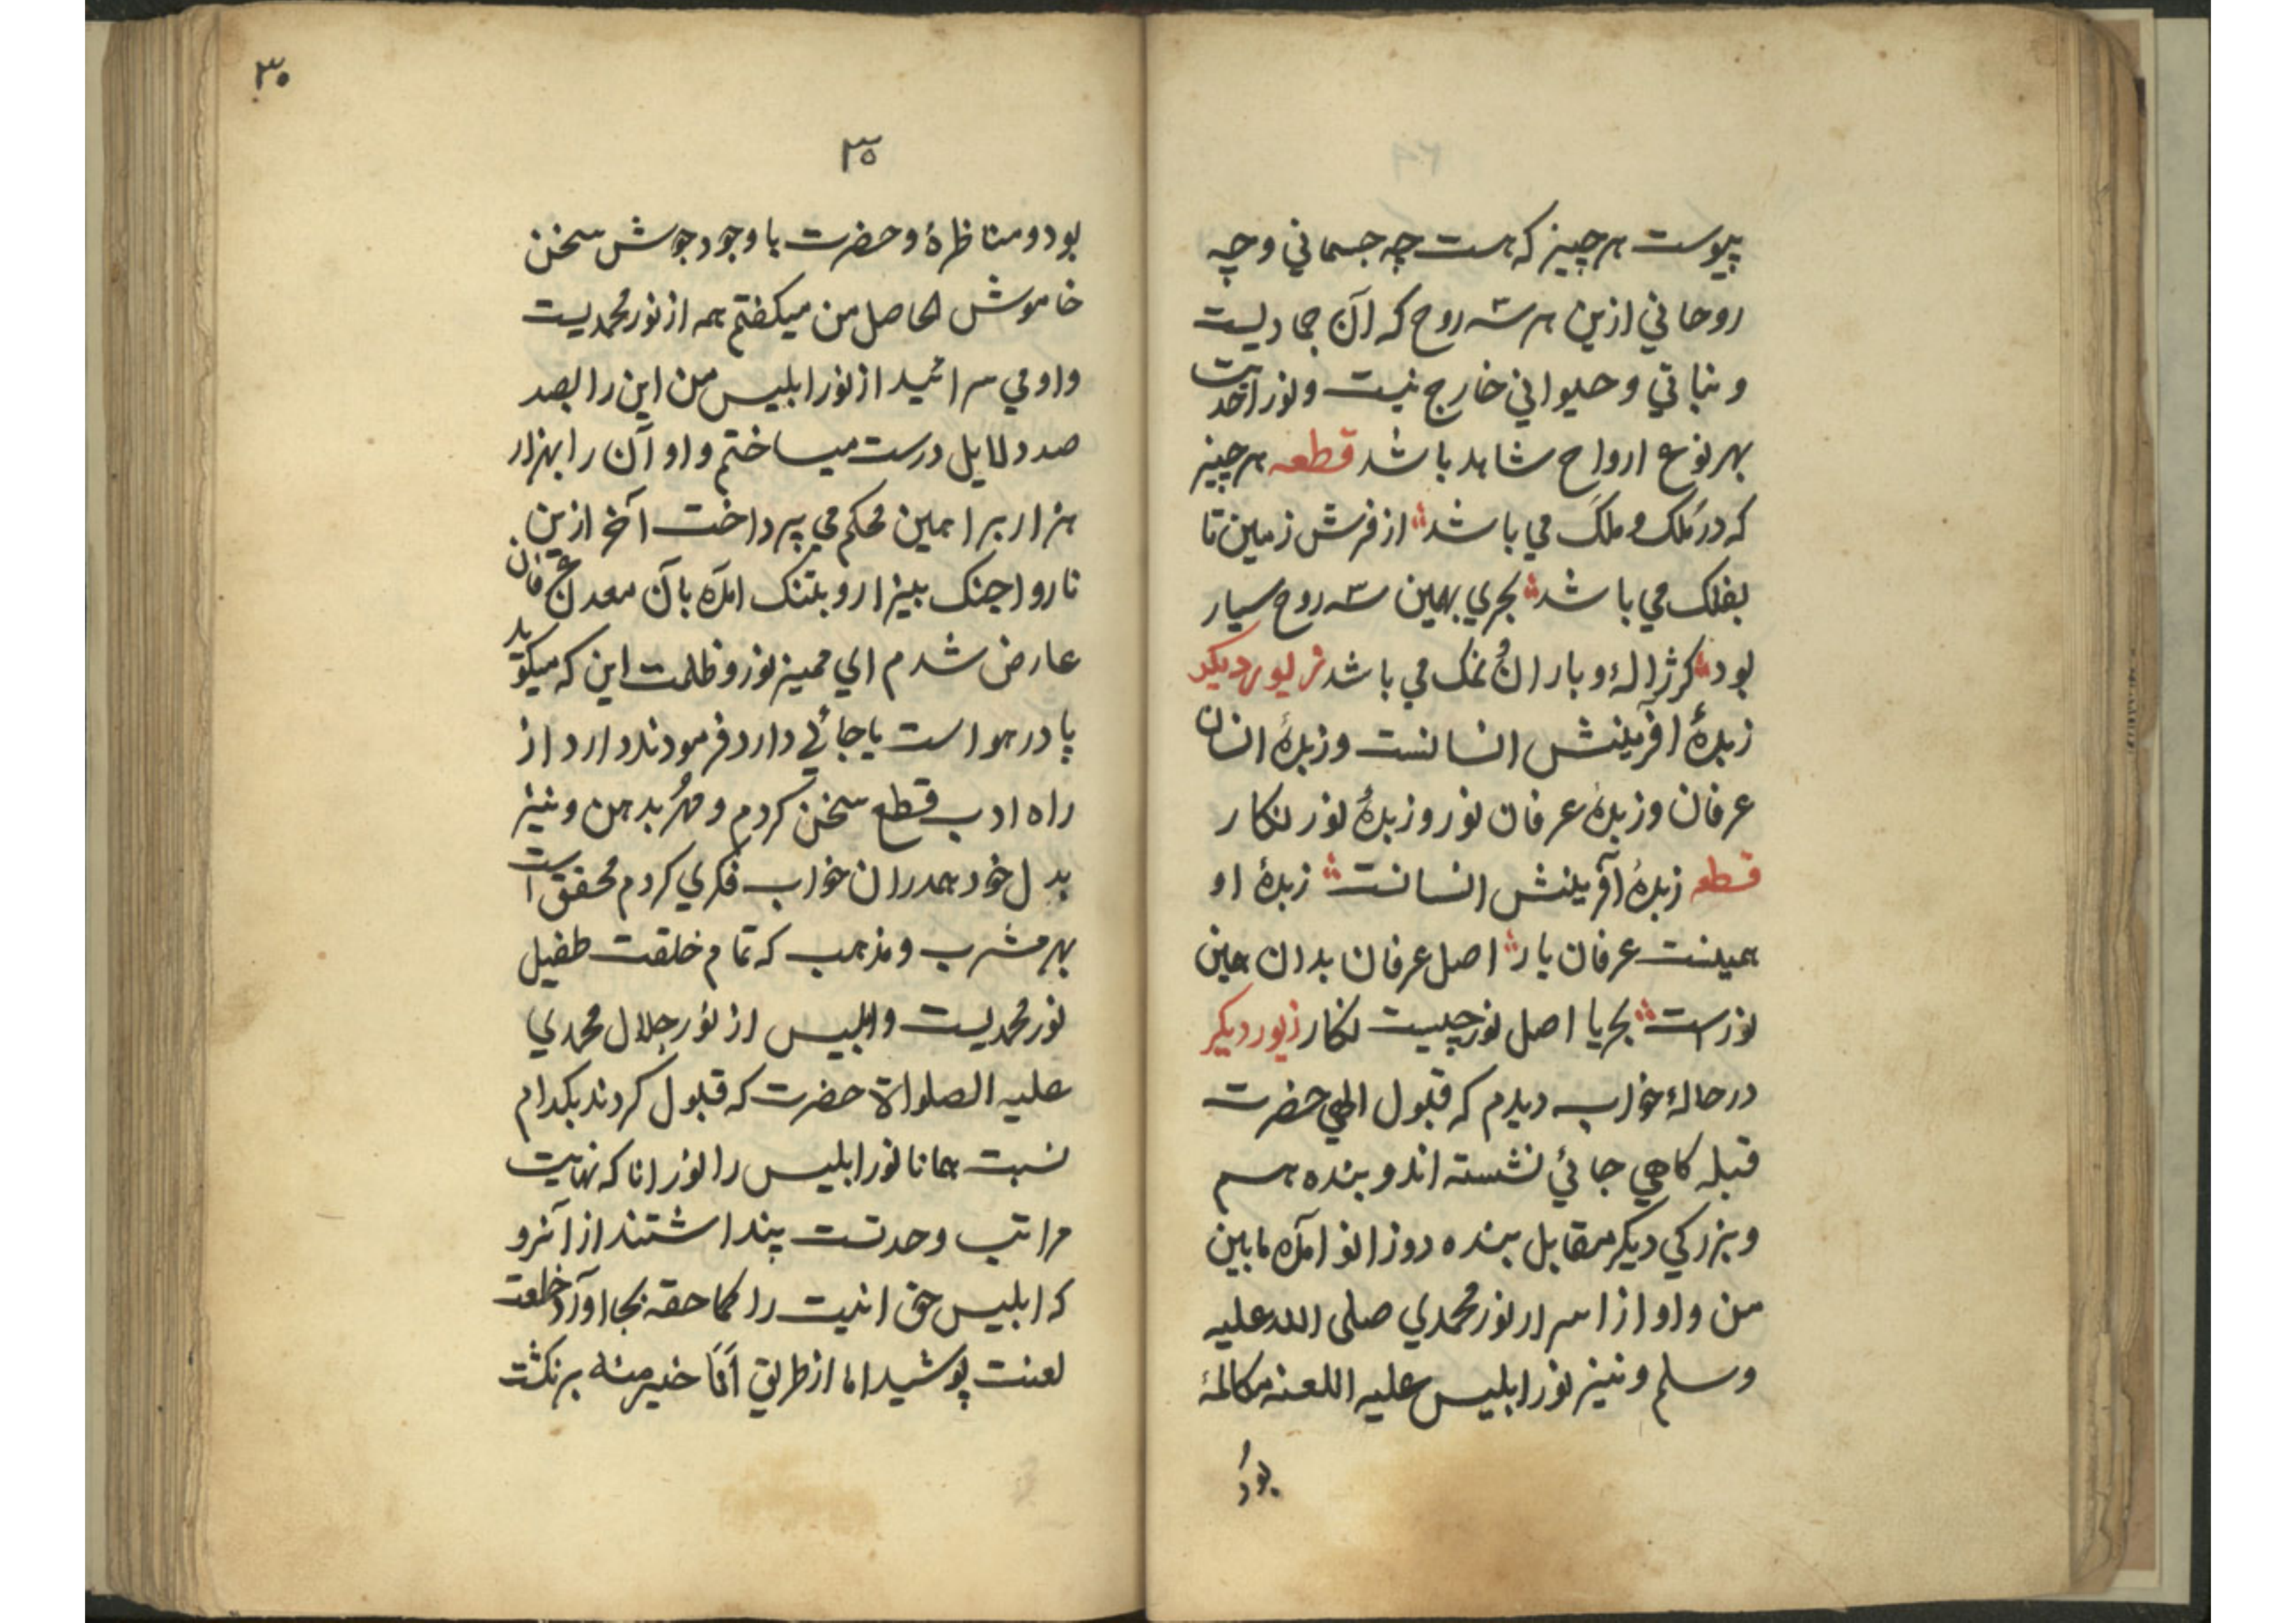 پیوست هر چیز که هست چه جسماني و چه
روحاني ازین هر سه روح که آن جمادیست
و نباتي و حیواني خارج نیست و نور احدیت
بهر نوع ارواح شاهد باشد قطعه هر چیز
که در مُلک و ملَک مي باشد از فرش زمین تا
بفلک مي باشد بحري بهمین سه روح سیار
بود کز ژالهٔ و باران نمک مي باشد زیور دیکر
زبدهٔ افرینش انسانست و زبدهٔ انسان
عرفان و زبدهٔ عرفان نور و زبدهٔ نور نکار
قطعه زبدهٔ آفرینش انسانست زبدهٔ او
همینست عرفان یار اصل عرفان بدان همین
نورست بحریا اصل نور چیست نکار زیور دیکر
در حالهٔ خواب دیدم که قبول الهي حضرت
قبله کاهي جائي نشسته اند و بنده هم
و بزرکي دیکر مقابل بنده دوزانو آمده مابین
من و او از اسرار نور محمدي صلی الله علیه
وسلم و نیز نور ابلیس علیه اللعنه مکالمهٔ
بود
٣٠
٣٥
بود و مناظرهٔ و حضرت با وجود جوش سخن
خاموش الحاصل من میکفتم همه از نور محمدیست
و او مي سرائید از نور ابلیس من این را بصد
صد دلایل درست میساختم و او آن را بهزار
هزار براهین محکم مي پرداخت آخر ازین
ناروا جنک بیزار و بتنک امده بآن معدن عرفان
عارض شدم اي ممیز نور و ظلمت این که میکوید
پا در هواست یا جائي دارد فرمودند دارد از
راه ادب قطع سخن کردم و مُهر بدهن و نیز
بدل خود همدران خواب فکري کردم محقق است
بهر مشرب و مذهب که تمام خلقت طفیل
نور محمدیست و ابلیس از نور جلال محمدي
علیه الصلواة حضرت که قبول کردند بکدام
نسبت همانا نور ابلیس را نور انا که نهایت
مراتب وحدتست پنداشتند از آنرو
که ابلیس حق انیت را کما حقه بجا اورد خلعت
لعنت پوشید اما از طریق اَنَا خیر منه برنکشت